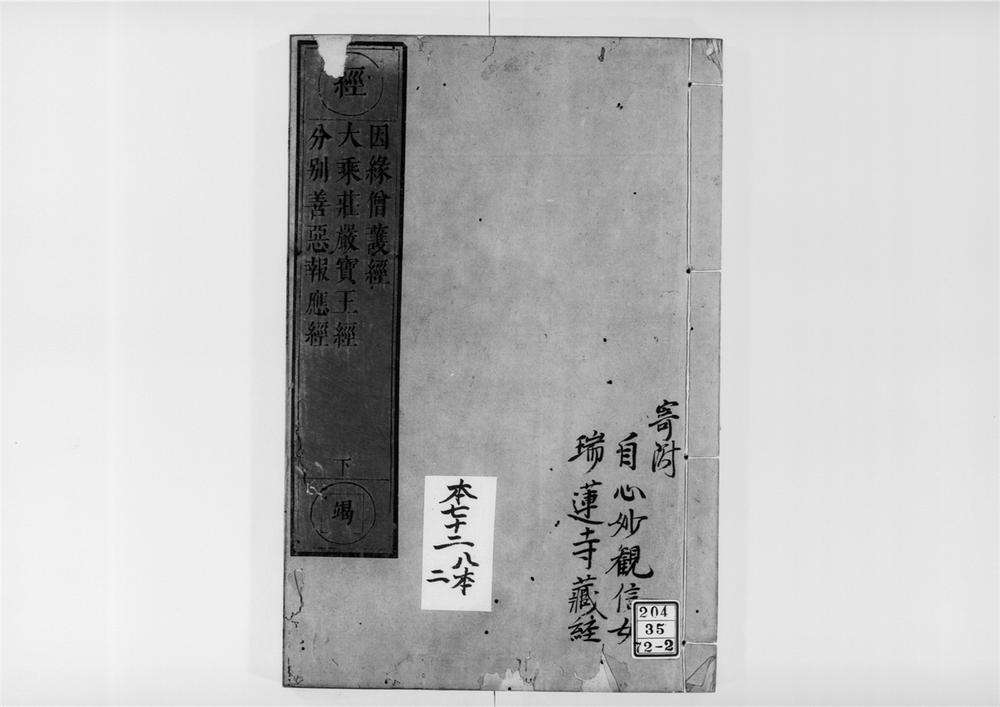 經
因緣僧護經
大乘莊嚴寶王經
分別善惡報應經
下
竭
寄附
自心妙観信女
瑞蓮寺藏経
本七十二 八本
二
204
35
72-2